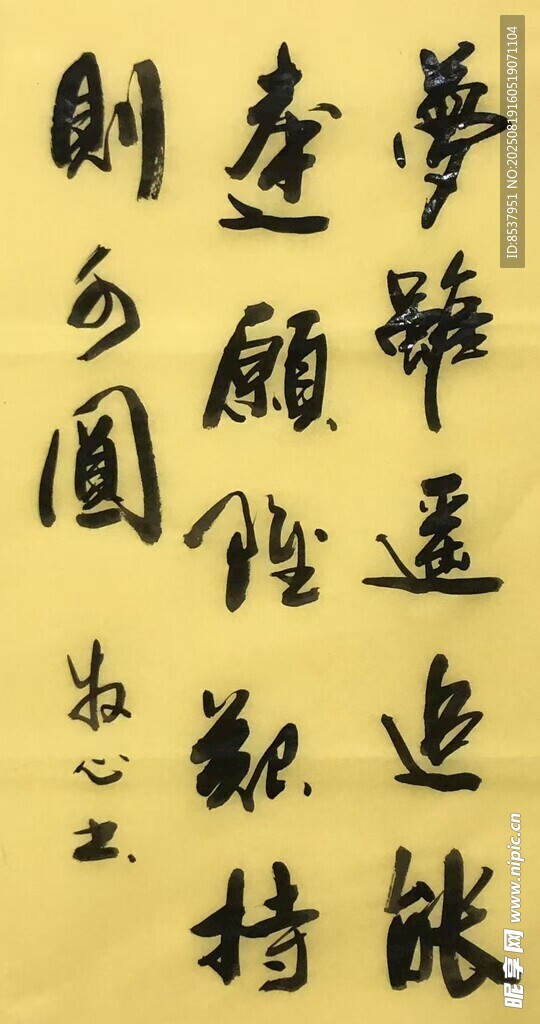 夢雖遥追能
達願雖艱持
則可圓
牧心书
ID:8537951 NO:20250819160519071104
昵享网 www.nipic.cn